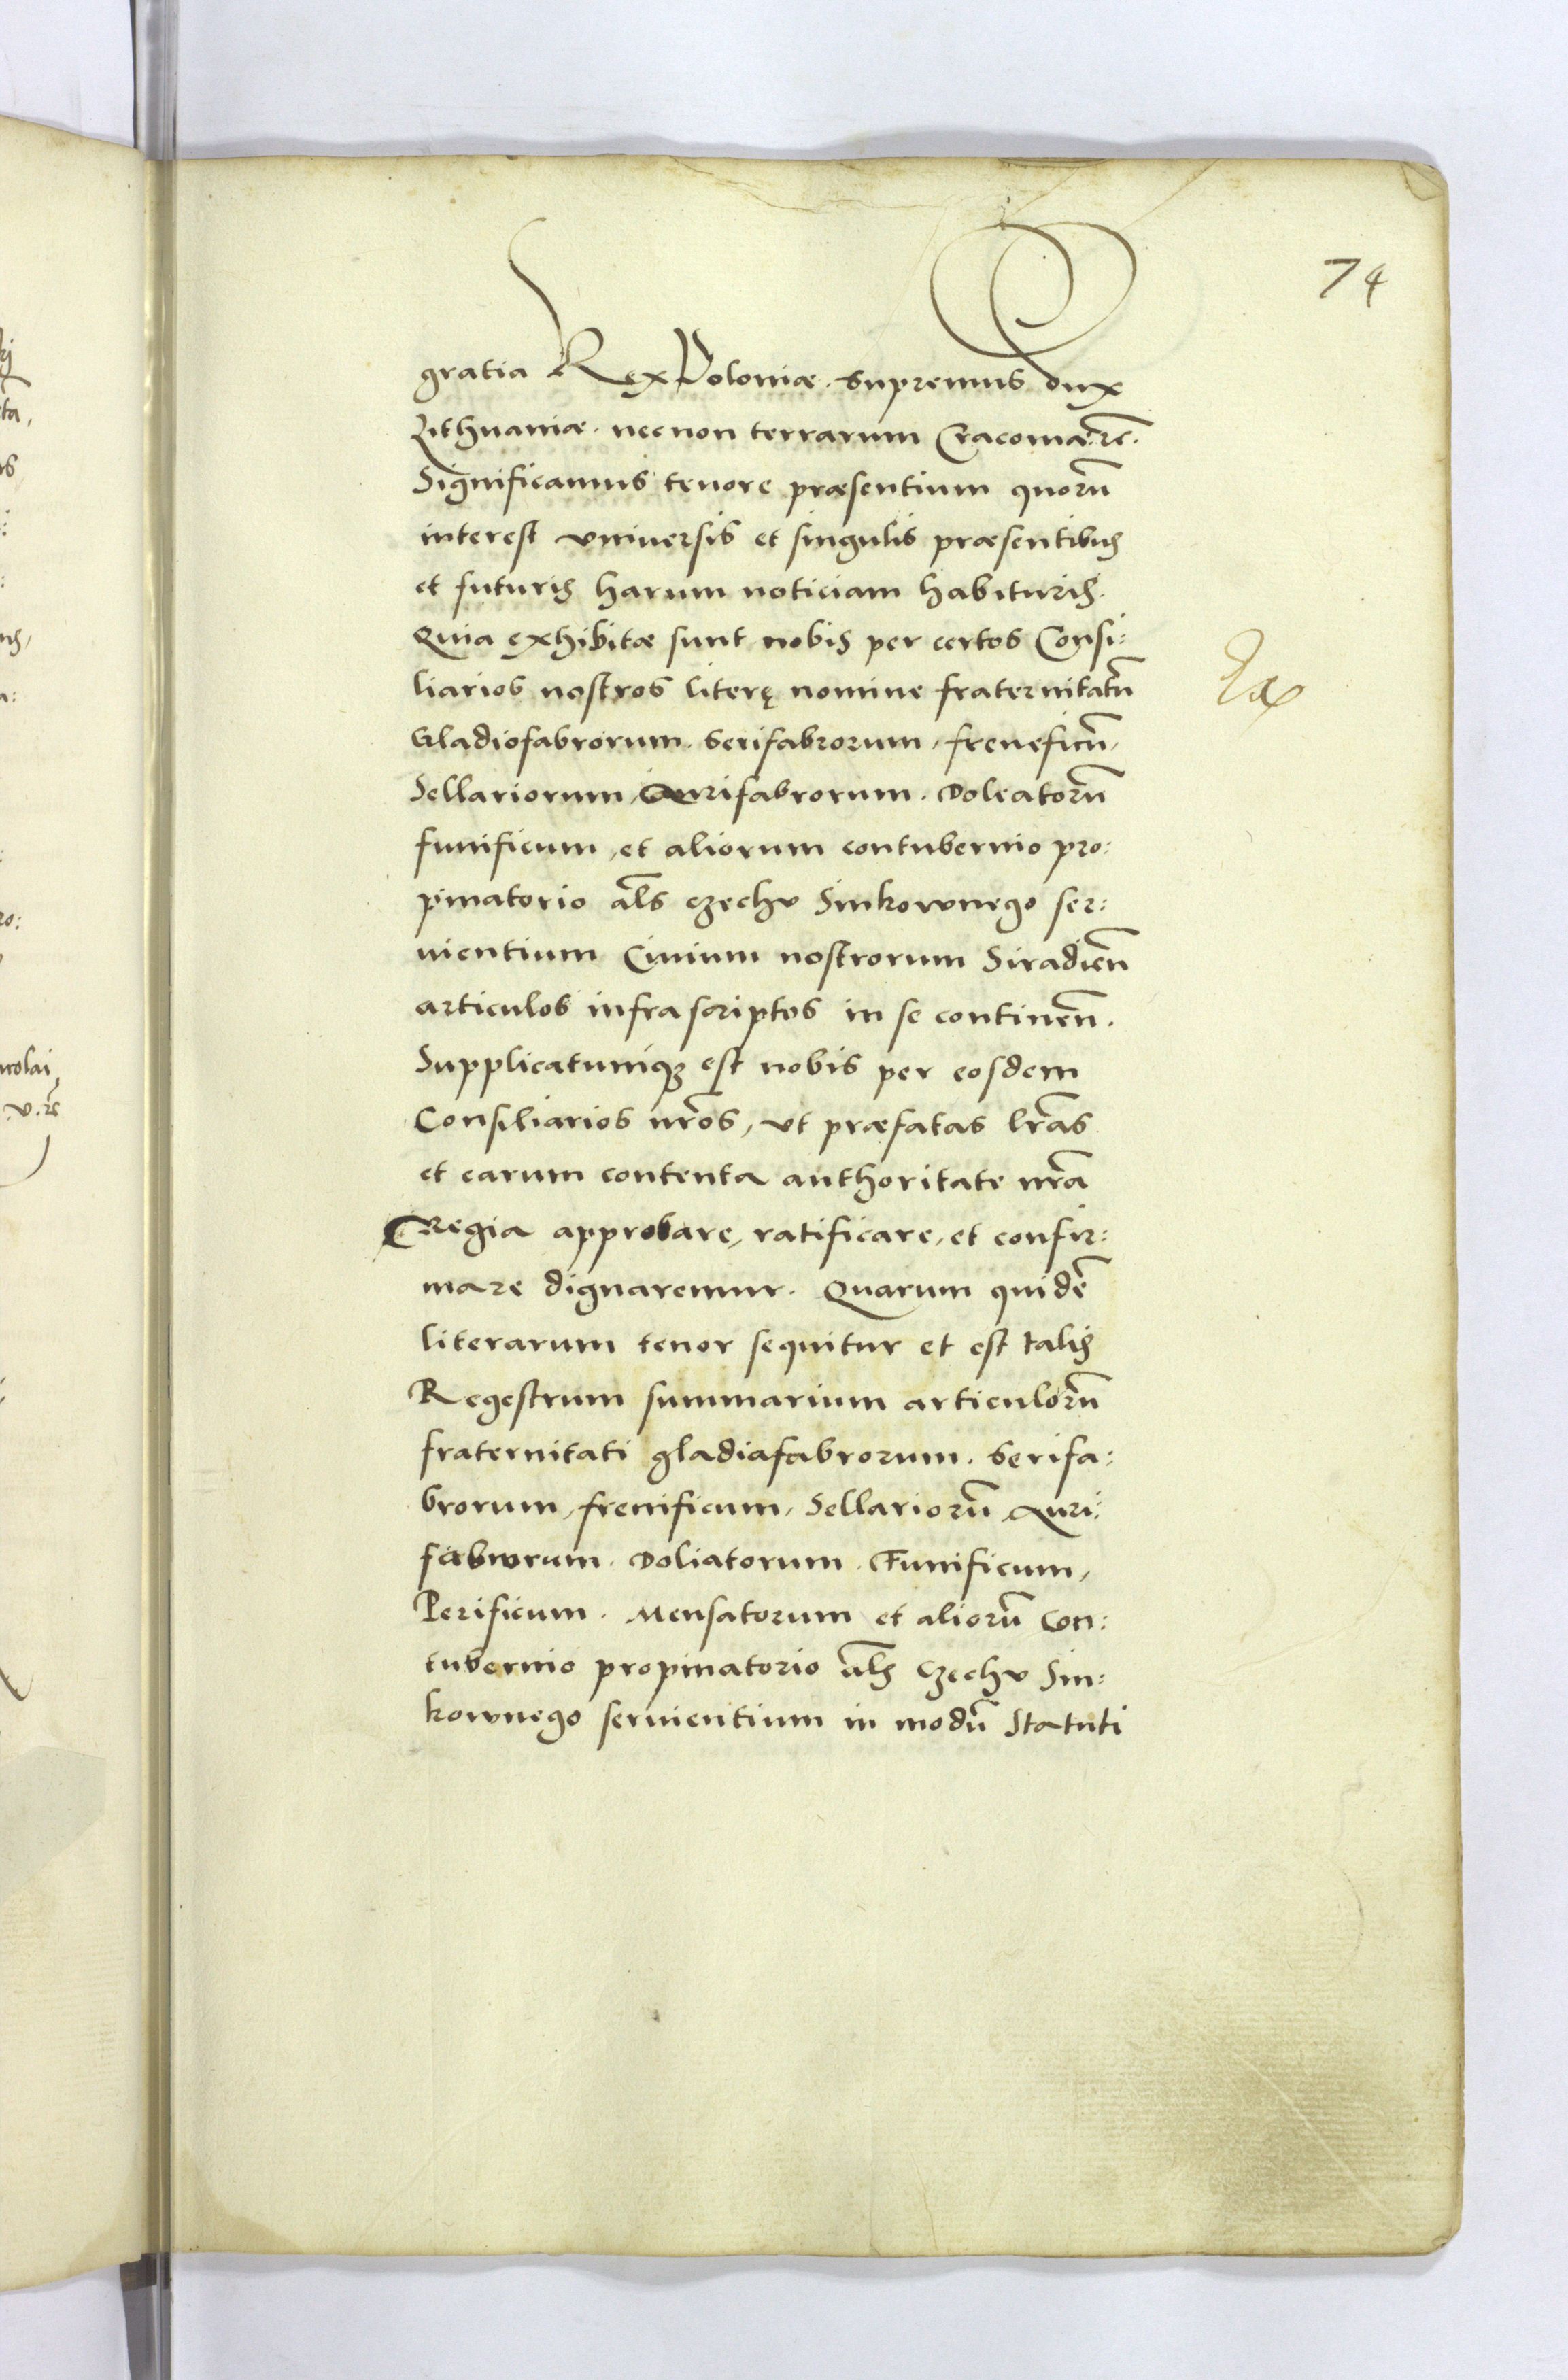 74
gratia Rex Poloniæ. supremus dux
Lithuaniæ. necnon terrarum Cracoviæ ꝛc.
Significamus tenore præsentium quorū
interest vniuersis et singulis præsentibus
et futuris harum noticiam habituris.
Quia exhibitæ sunt nobis per certos Consi:
liarios nostros literę nomine fraternitatū
Gladiofabrorum. Serifabrorum, freneficū,
Sellariorum, Aurifabrorum. Doleatorū
funificum, et aliorum contubernio pro:
pinatorio als czechu Sinkownego ser:
uientium Ciuium nostrorum Siradien̄
articulos infrascriptos in se continen̄.
Supplicatumqꝫ est nobis per eosdem
Consiliarios nr̄os, vt præfatas lr̄as
et earum contenta authoritate nr̄a
Regia approbare, ratificare, et confir:
mare dignaremur. Quarum quidē
literarum tenor sequitur et est talis
Regestrum summarium articulorū
fraternitati gladiafabrorum. Serifa:
brorum, frenificum, Sellariorū Auri:
fabrorum. Doliatorum. Funificum,
Perificum. Mensatorum et aliorū Con:
tubernio propinatorio als czechu Sin:
kownego seruientium in modū Statuti